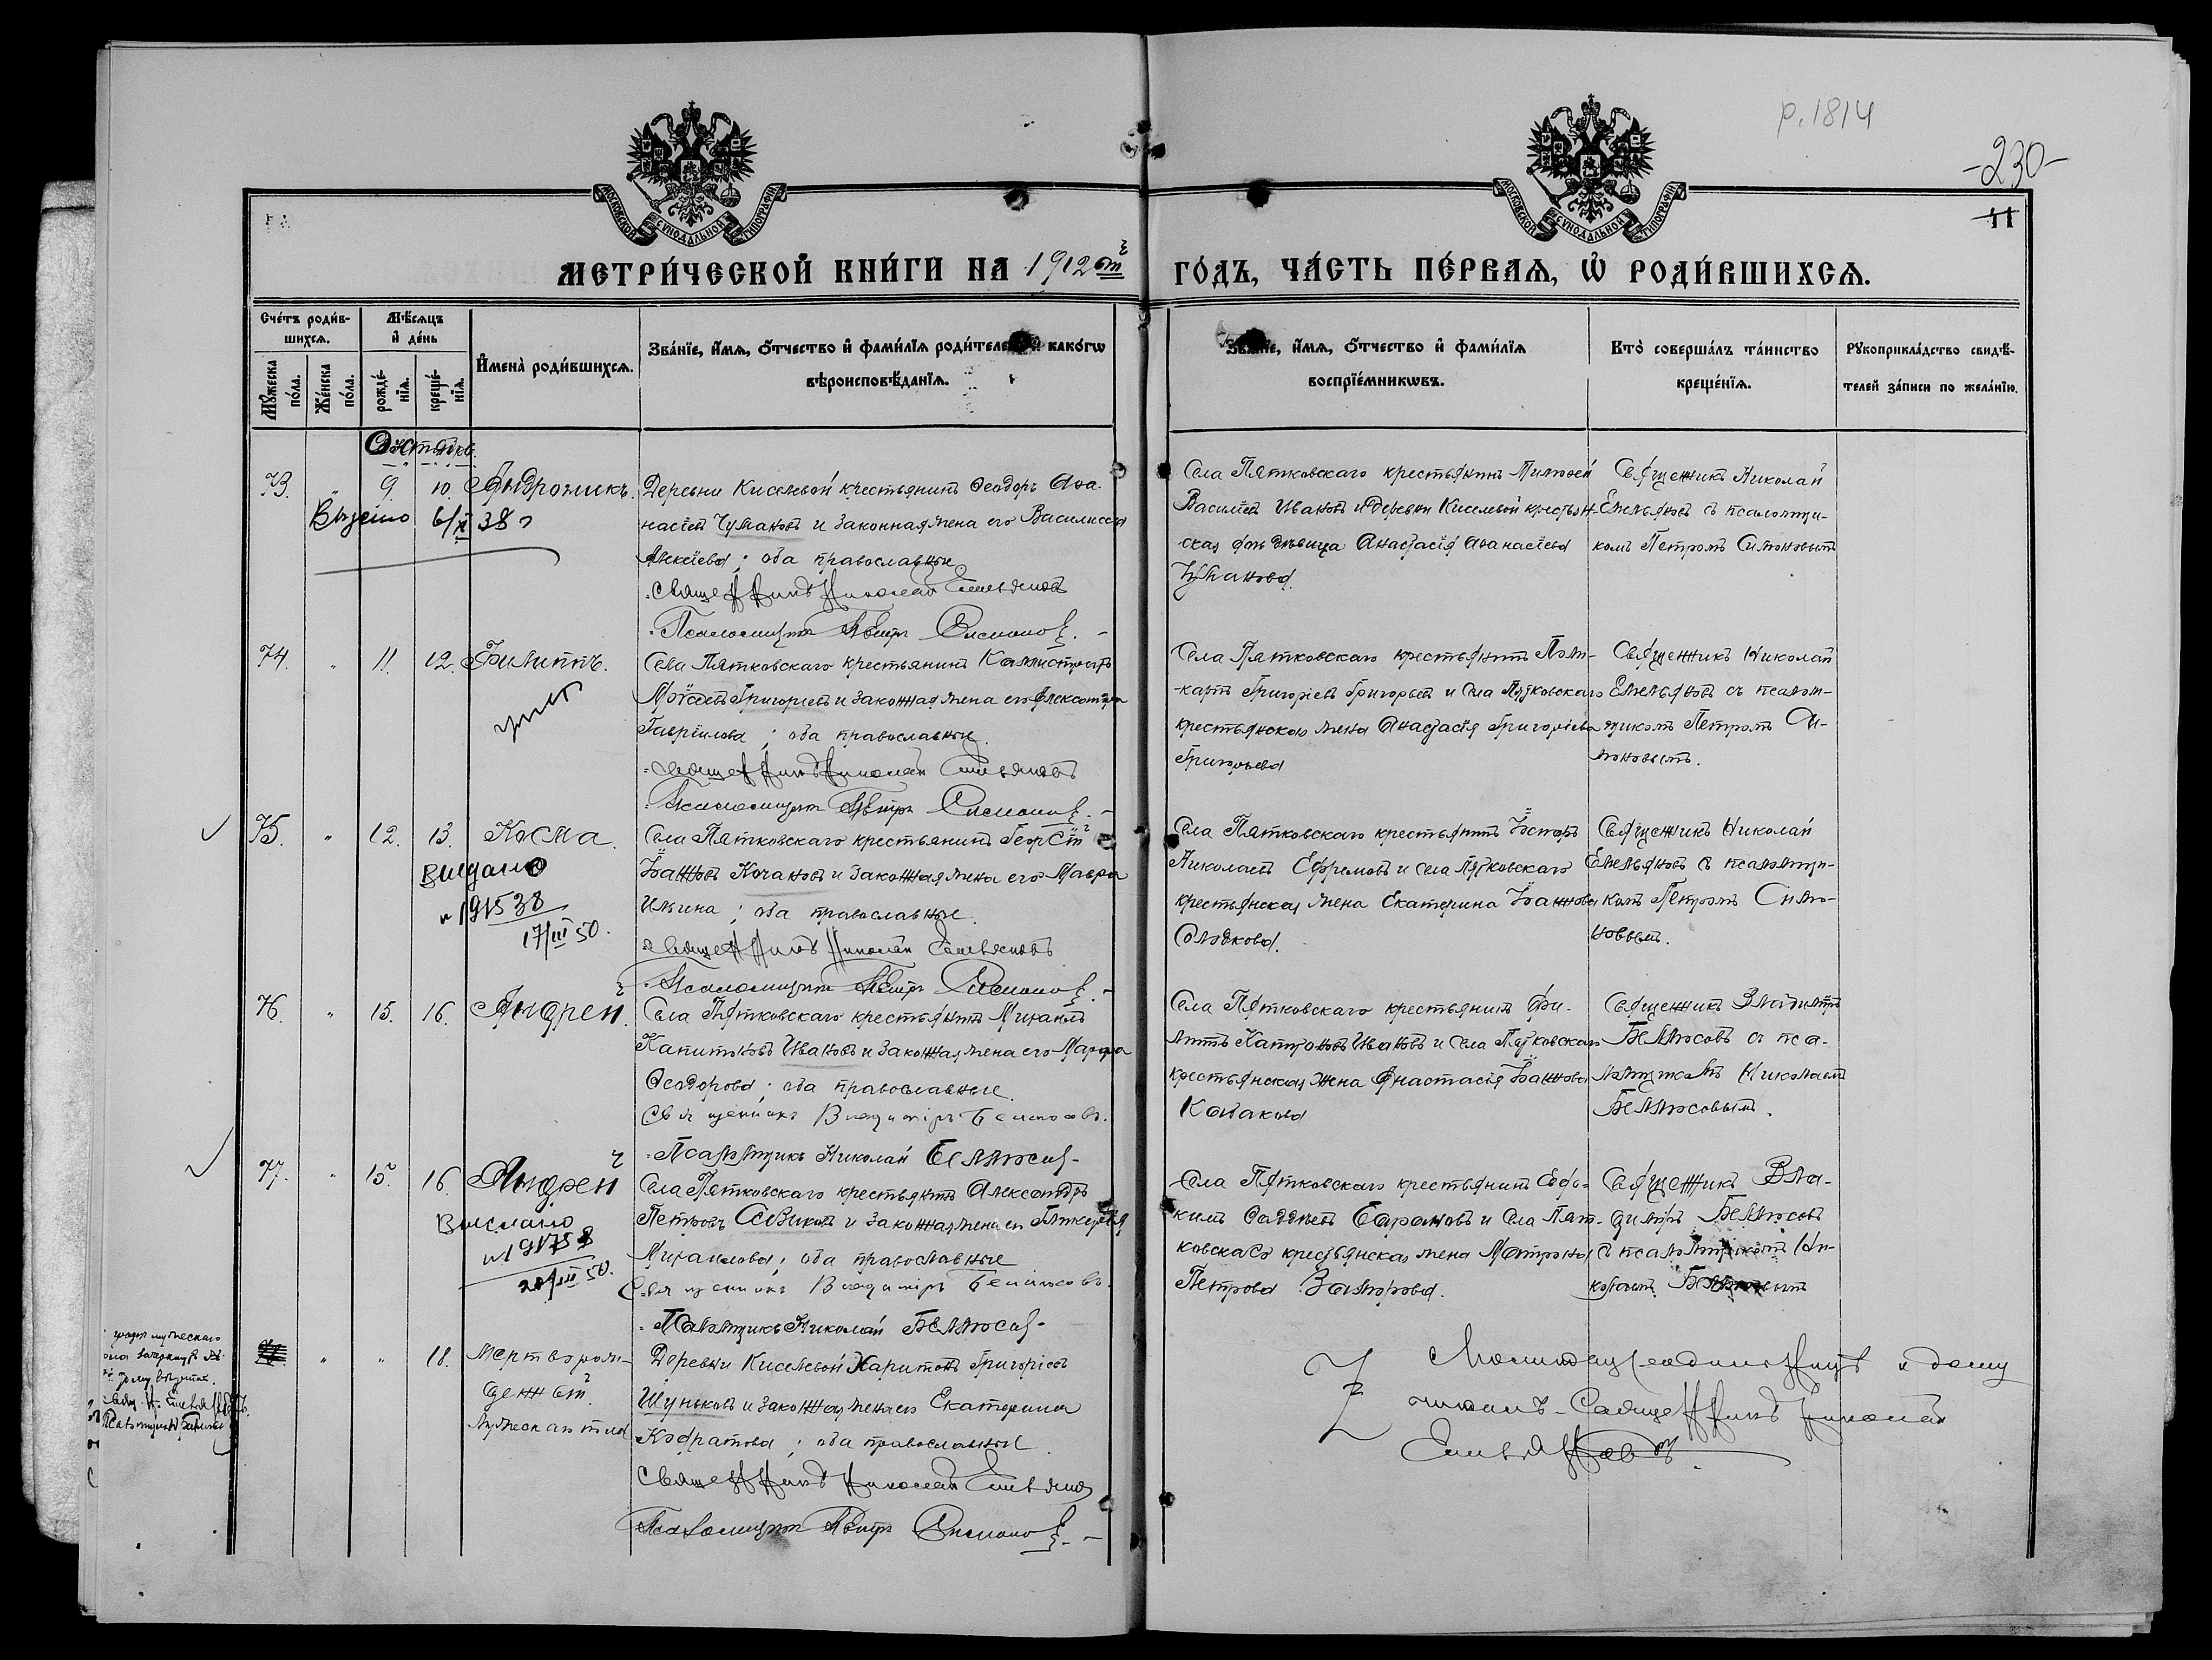 р. 1814
-230-
11
МОСКОВСКОЙ СѴНОДАЛЬНОЙ ТИПОГРАФІИ
МОСКОВСКОЙ СѴНОДАЛЬНОЙ ТИПОГРАФІИ
МЕТРИ́ЧЕСКОЙ КНИ́ГИ НА 1912 ой ГО́ДЪ, ЧА́СТЬ ПЕ́РВАЯ, Ѡ РОДИ́ВШИХСЯ.
Сче́тъ роди́в-
шихся.
Мѣ́сяцъ
и де́нь
Му́жеска по́ла.
Же́нска по́ла.
рожде́-
нія.
креще́-
нія.
Имена̀ роди́вшихся.
Зва́ніе, и́мя, о́тчество и фами́лія роди́телей и како́гѡ
вѣроисповѣ́данія.
Зва́ніе, и́мя, о́тчество и фами́лія
воспріе́мникѡвъ.
Кто̀ соверша́лъ та́инство
креще́нія.
Рукоприкла́дство свидѣ́-
телей за́писи по жела́нію.
Октябрь.
73. " 9. 10. Андроникъ.
Деревни Киселевой крестьянинъ Ѳеодоръ Аѳа-
насіевъ Чумаковъ и законная жена его Василисса
Алексіева; оба православные
Священникъ Николай Емельяновъ
Псаломщикъ Петръ Симоновъ.
Села Пятковскаго крестьянинъ Тимоѳей
Василіевъ Ивановъ и деревни Киселевой крестьян-
ская дѣвица Анастасія Аѳанасіева
Чумакова.
Священникъ Николай
Емельяновъ съ псаломщи-
комъ Петромъ Симоновымъ
74. " 11. 12. Филиппъ.
Села Пятковскаго крестьянинъ Каллистратъ
Григоріевъ и законная жена его Александра
Гавріилова; оба православные.
Священникъ Николай Емельяновъ
Псаломщикъ Петръ Симоновъ.
Села Пятковскаго крестьянинъ Поли-
карпъ Григоріевъ Григорьевъ и села Пятковскаго
крестьянская жена Анастасія Григоріева
Григорьева
Священникъ Николай
Емельяновъ съ псалом-
щикомъ Петромъ Си-
моновымъ.
75. " 12. 13. Косма.
Выдано
№ 191538
17/III 50.
Села Пятковскаго крестьянинъ Георгій
Іоанновъ Качановъ и законная жена его Мавра
Ильина; оба православные.
Священникъ Николай Емельяновъ
Псаломщикъ Петръ Симоновъ.
Села Пятковскаго крестьянинъ
Николаевъ Ефремовъ и села Пятковскаго
крестьянская жена Екатерина Іоаннова
Священникъ Николай
Емельяновъ съ псаломщи-
комъ Петромъ Симо-
новымъ.
76. " 15. 16. Андрей.
Села Пятковскаго крестьянинъ Михаилъ
Капитоновъ Ивановъ и законная жена его Марѳа
Ѳеодорова; оба православные.
Священникъ Владиміръ Бѣлюсовъ.
Псаломщикъ Николай Бѣлюсовъ
Села Пятковскаго крестьянинъ Фи-
липпъ Капитоновъ Ивановъ и села Пятковскаго
крестьянская жена Анастасія Іоаннова
Казакова
Священникъ Владиміръ
Бѣлюсовъ съ пса-
ломщикомъ Николаемъ
Бѣлюсовымъ.
77. " 15. 16. Андрей
Выслано
20/III 50.
Села Пятковскаго крестьянинъ Александръ
Петровъ и законная жена его Гликерія
Михаилова; оба православные
Священникъ Владиміръ Бѣлюсовъ.
Псаломщикъ Николай Бѣлюсовъ
Села Пятковскаго крестьянинъ
Барановъ и села Пят-
ковскаго крестьянская жена Матрона
Петрова
Священникъ Вла-
диміръ Бѣлюсовъ
съ псаломщикомъ Ни-
колаемъ Бѣлюсовымъ
" " 18. Мертворож-
денный
мужеска пола
Деревни Киселевой Харитонъ Григоріевъ
Шуньковъ и законная жена его Екатерина
Кодратова; оба православные.
Священникъ Николай Емельяновъ
Псаломщикъ Петръ Симоновъ.
Священникъ Николай
Емельяновъ.